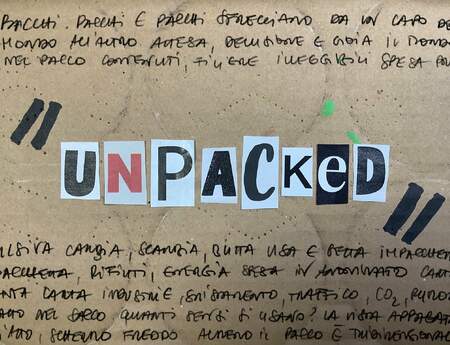 PACCHI. PACCHI E PACCHI SFRECCIANO DA UN CAPO DE
MONDO ALL'ALTRO ATTESA, DELUSIONE E GIOIA IL MONDO
NEL PACCO CONTENUTI, FILIERE ILLEGGIBILI SPESA
"UNPACKED"
ULSIVA CAMBIA, SCAMBIA, BUTTA USA E GETTA IMPACCHE
PACCHETTA, RIFIUTI, ENERGIA SPESA IN
CARTA INDUSTRIE, SMISTAMENTO, TRAFFICO, CO2,
NEL SACCO QUANTI SENSI SI USANO? LA VISTA APPAGATA
SCHERMO FREDDO ALMENO IL PACCO È TRIDIMENSIONAL